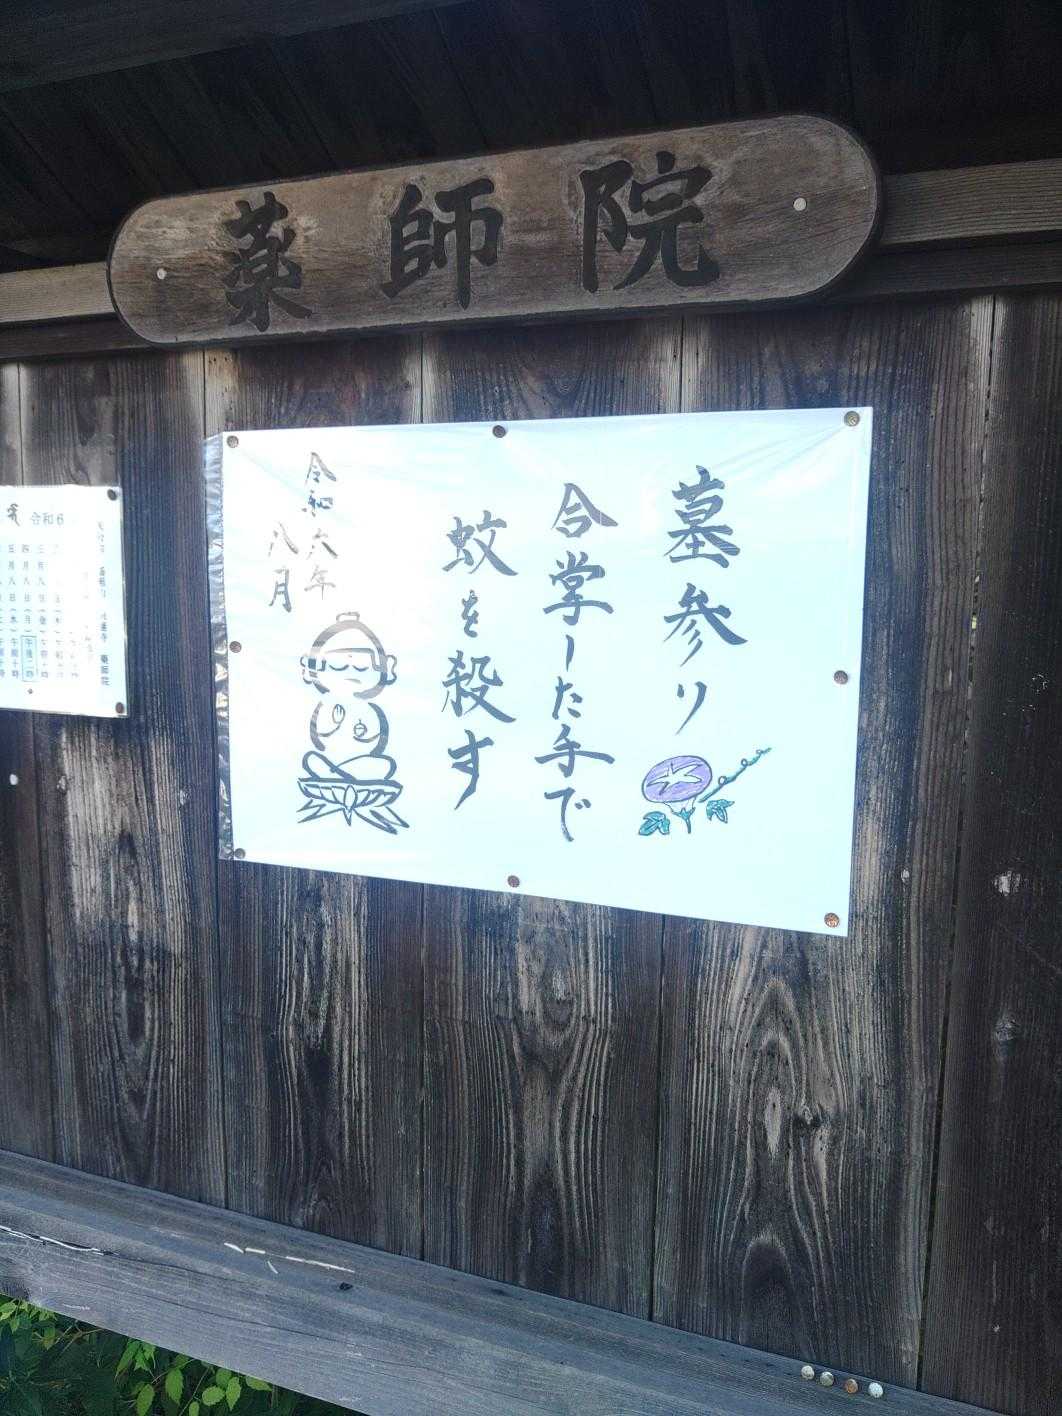 薬師院
墓参り
合掌した手で
蚊を殺す
令和六年
八月
令和6